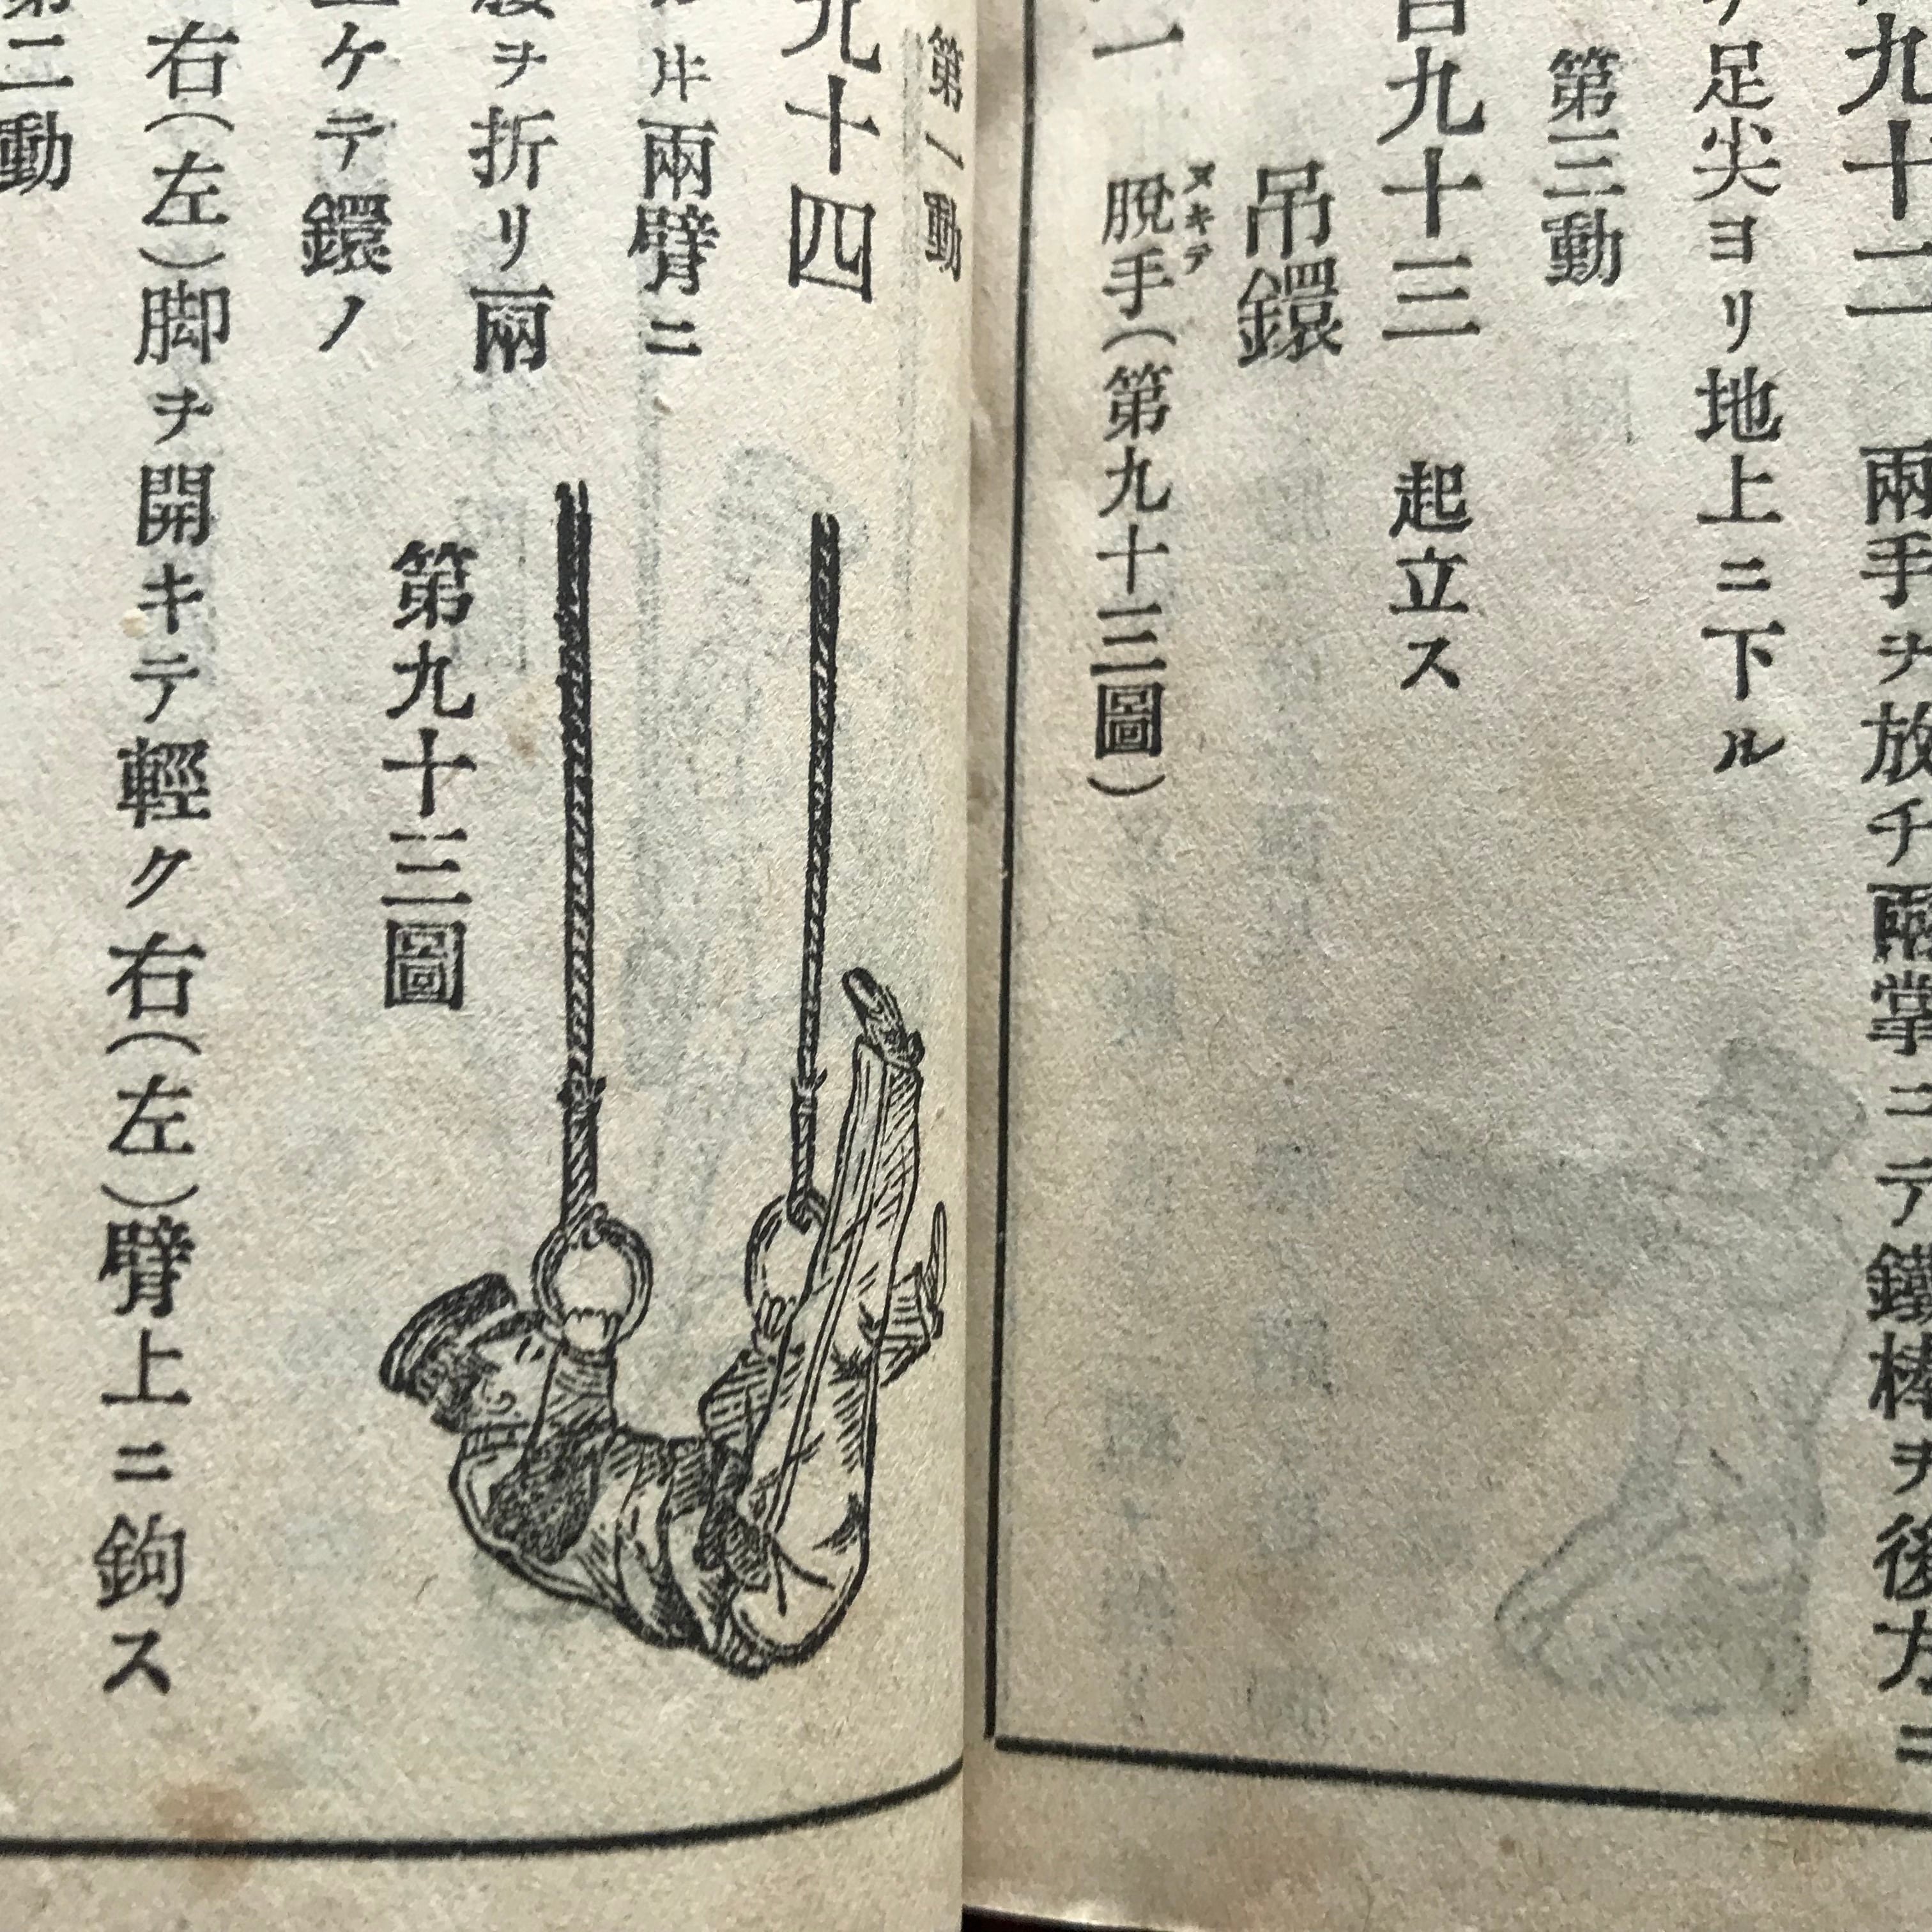 九十二 兩手ヲ放チ兩掌ニテ鐵棒ヲ後方ニ
足尖ヨリ地上ニ下ル
第三動
百九十三 起立ス
吊鐶
一 脫手(第九十三圖)
ヌキテ
第一動
九十四
兩臂ニ
ヲ折リ兩
ケテ鐶ノ
第九十三圖
右(左)脚ヲ開キテ輕ク右(左)臂上ニ鉤ス
第二動